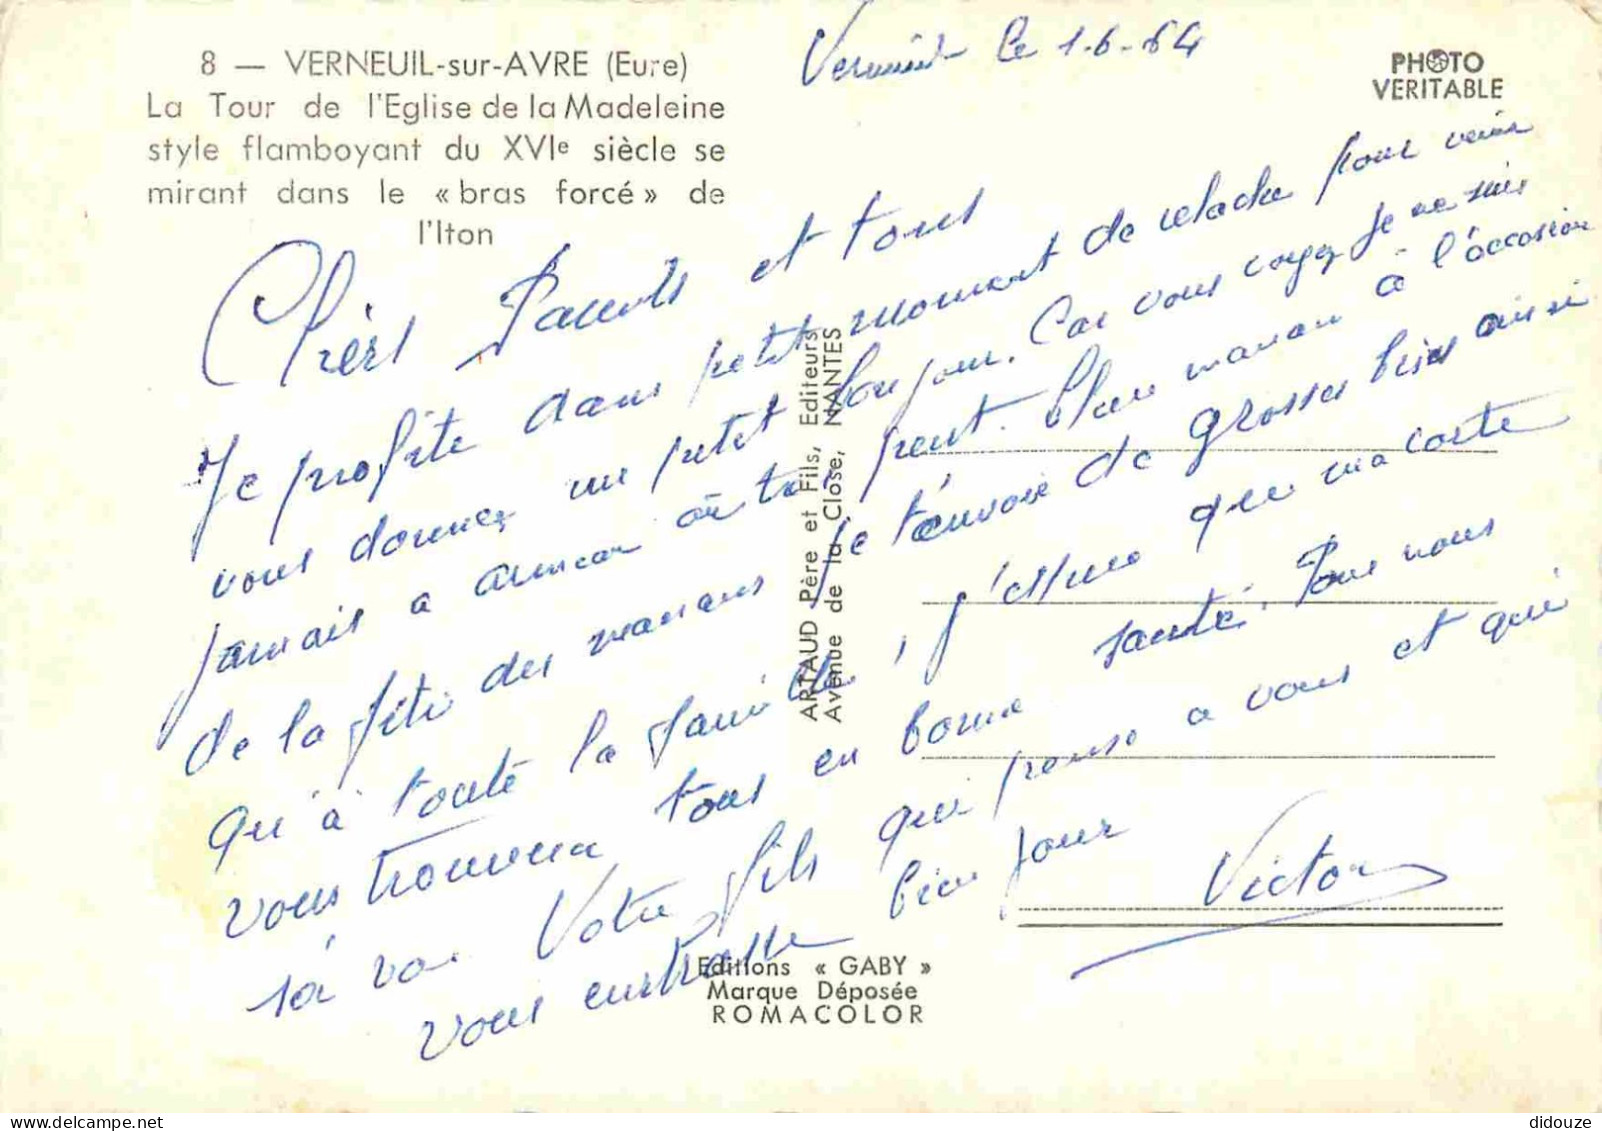 8 — VERNEUIL-sur-AVRE (Eure)
La Tour de l'Eglise de la Madeleine
style flamboyant du XVIe siècle se
mirant dans le « bras forcé » de
l'Iton
le 1-6-64
PHOTO
VERITABLE
Chèrs Parents et tous
Je profite dans petit moment de relache pour venir
vous donner un petit bonjour. Car vous voyez je ne suis
jamais a peut. maman à l'occasion
de la fête des mamans je t'envoie de grosses bises ainsi
qu'à toute la famille, j'espère que ma carte
vous trouvera tous en bonne santé. Pour nous
sa va. Votre fils qui pense a vous et qui
vous embrasse bien fort
Victor
ARTAUD Père et Fils, Editeurs
Avenue de la Close, NANTES
Editions « GABY »
Marque Déposée
ROMACOLOR
didouze